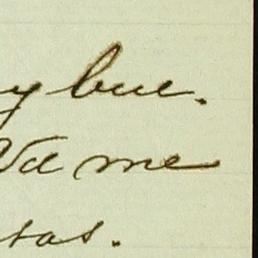 y bue.
Va me
sas.